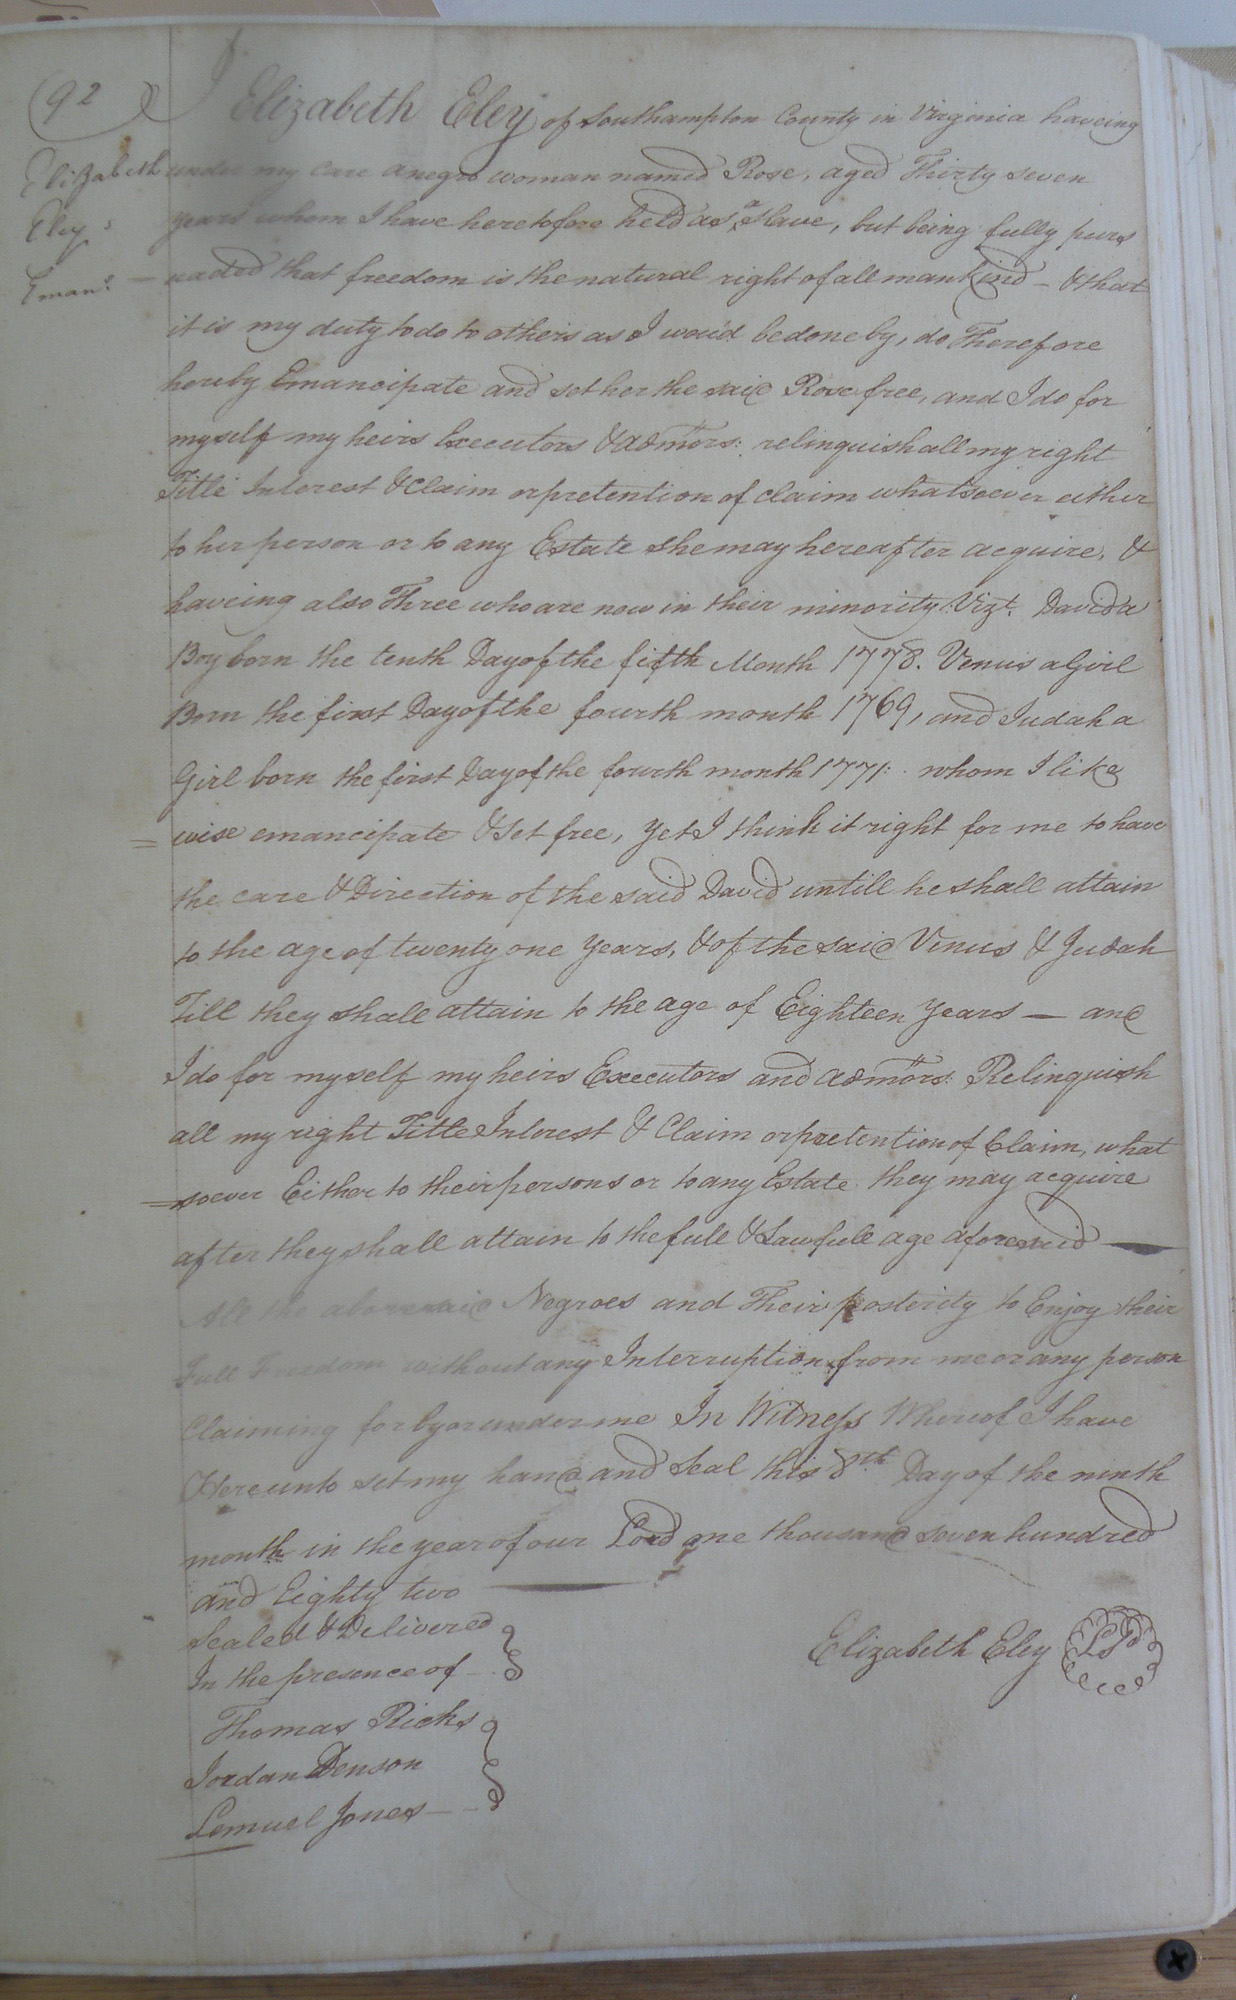 (92)
Elizabeth
Eley's
Eman.n
I Elizabeth Eley of Southampton County in Virginia haveing
under my care a negro woman named Rose, aged Thirty seven
years whom I have heretofore held as a Slave, but being fully purs
uaded that freedom is the natural right of all mankind – & that
it is my duty to do to others as I wou'd be done by, do Therefore
hereby Emancipate and set her the said Rose free, and I do for
myself my heirs Executors & admors: relinquish all my right
Title Interest & Claim or pretention of claim whatsoever either
to her person or to any Estate she may hereafter acquire, &
haveing also Three who are now in their minority Vizt. David a
Boy born the tenth Day of the fifth Month 1778. Venus a Girl
Born the first Day of the fourth month 1769, and Judah a
Girl born the first Day of the fourth month 1771: whom I like
= wise emancipate & Set free, Yet I think it right for me to have
the care & Direction of the said David untill he shall attain
to the age of twenty one Years, & of the said Venus & Judah
Till they shall attain to the age of Eighteen Years — and
I do for myself my heirs Executors and admors: Relinquish
all my right Title Interest & Claim or pretention of Claim, what
= soever Either to their persons or to any Estate they may acquire
after they shall attain to the full & Lawfull age aforesaid —
All the abovesaid Negroes and Their posterity to Enjoy their
Full Freedom without any Interruption from me or any person
Claiming for by or under me In Witness Whereof I have
Hereunto set my hand and Seal this 8th Day of the ninth
month in the year of our Lord one thousand seven hundred
and Eighty two
Sealed & Delivered
In the presence of
Elizabeth Eley LSd
Thomas Ricks
Jordan Denson
Lemuel Jones